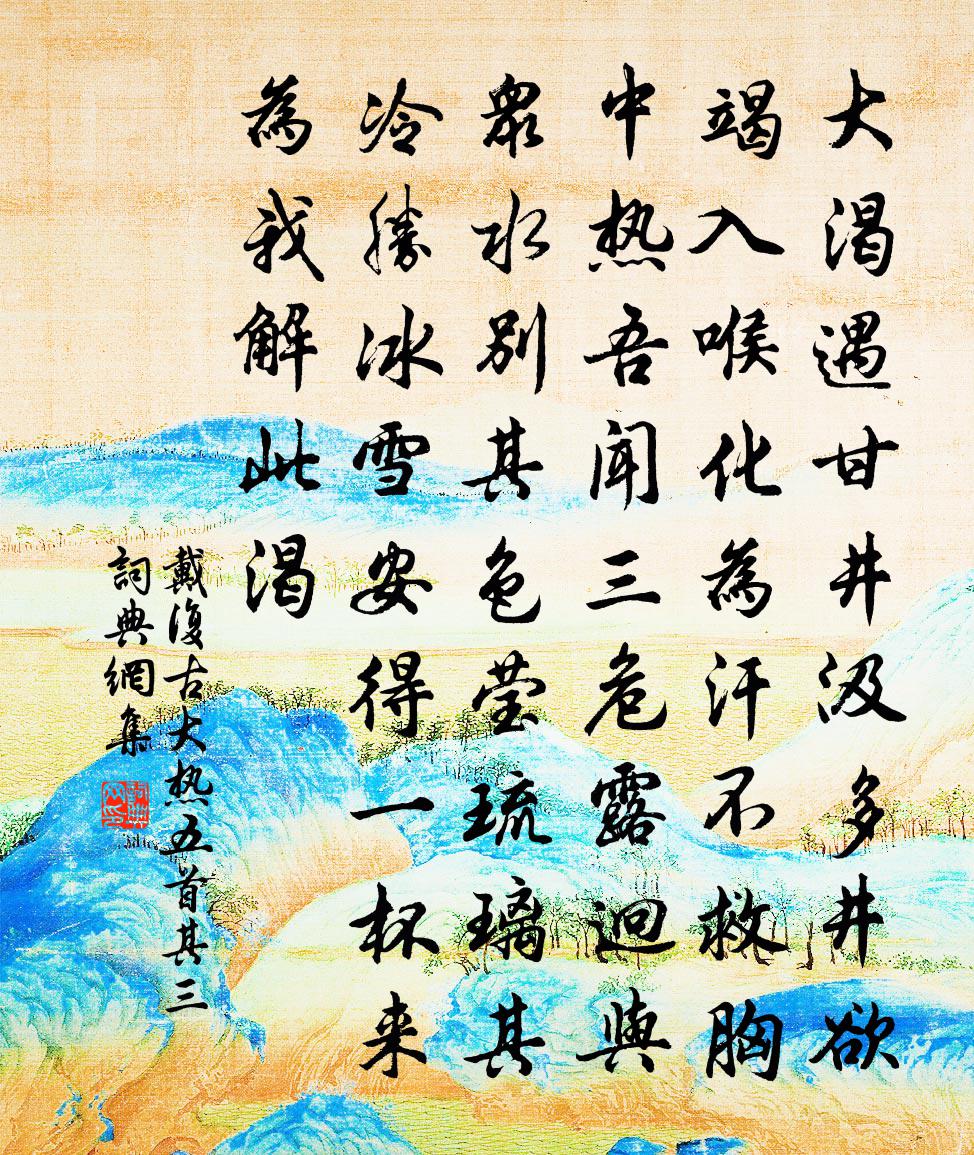 大渴遇甘井汲多井欲
竭入喉化為汗不救胸
中热吾闻三危露迥與
衆水别其色莹琉璃其
冷勝冰雪安得一杯来
為我解此渴
戴復古大热五首其三
詞典網集